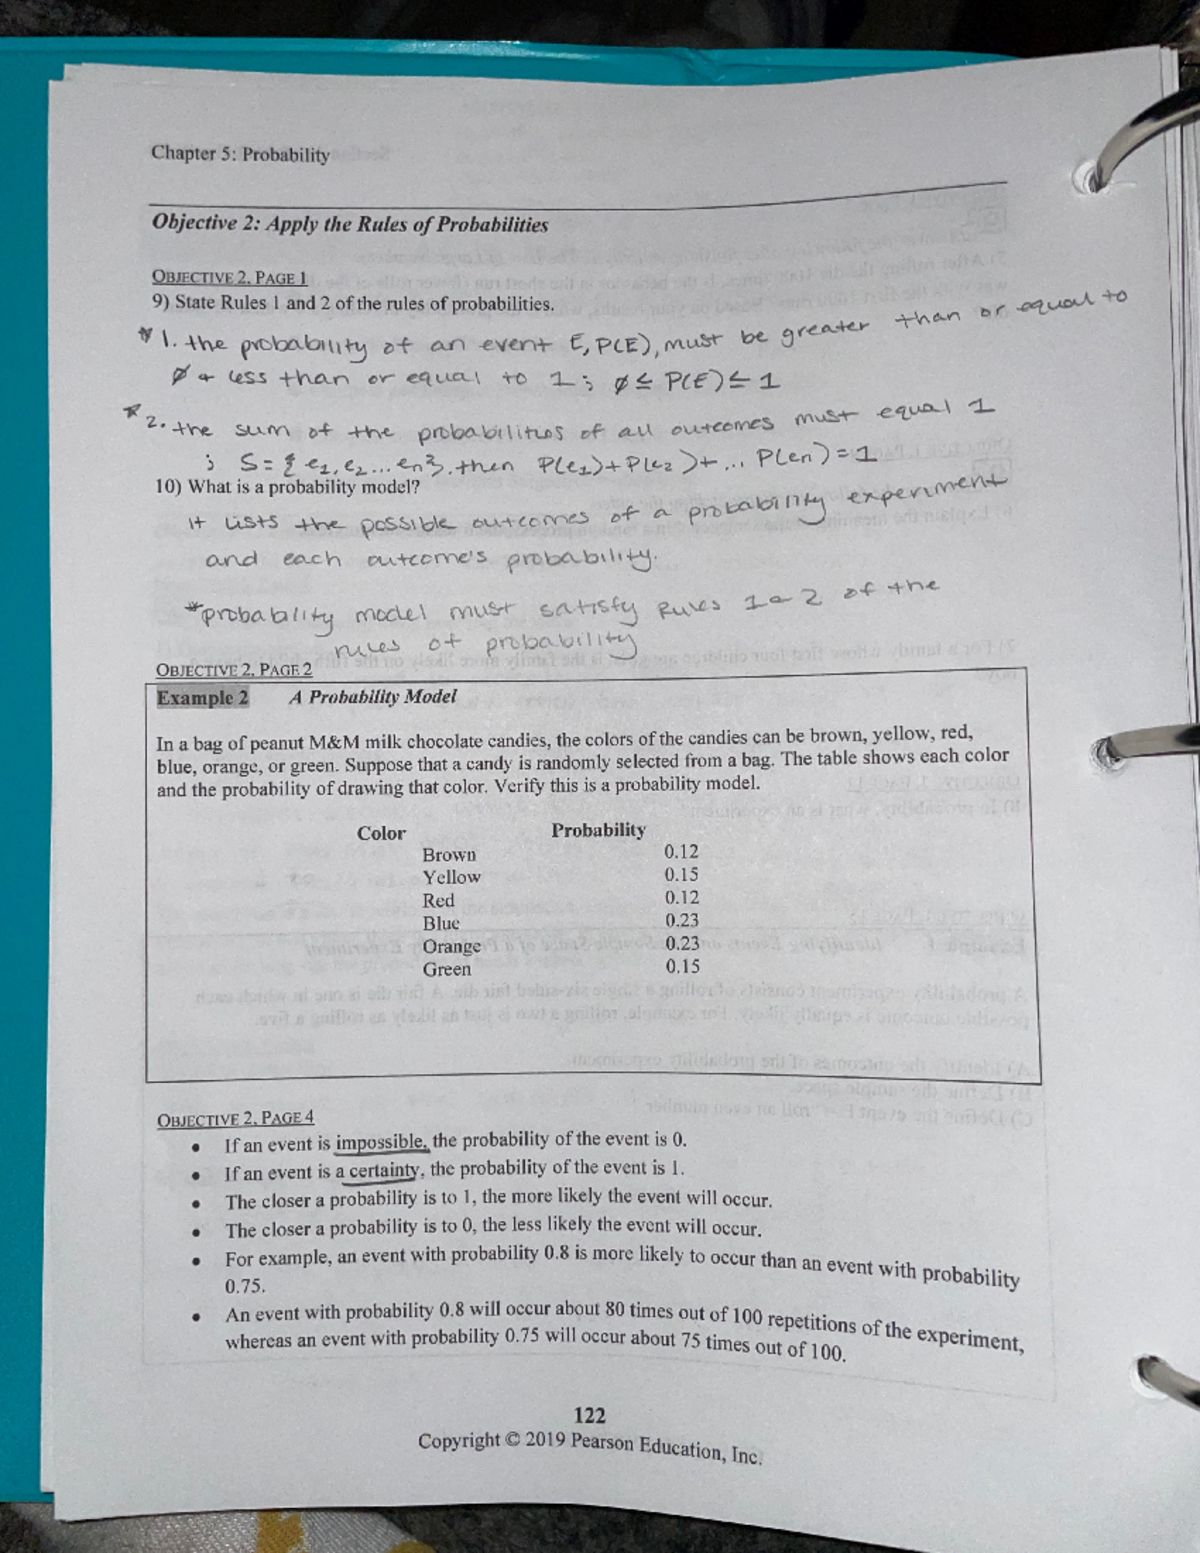 Chapter 5: Probability
Objective 2: Apply the Rules of Probabilities
OBJECTIVE 2, PAGE 1
9) State Rules 1 and 2 of the rules of probabilities.
* 1. the probability of an event E, P(E), must be greater than or equal to
∅ + less than or equal to 1; ∅ ≤ P(E) ≤ 1
* 2. the sum of the probabilities of all outcomes must equal 1
; S = { e1, e2 ... en}, then P(e1) + P(e2) + ... P(en) = 1
10) What is a probability model?
It lists the possible outcomes of a probability experiment
and each outcome's probability.
*probability model must satisfy Rules 1 & 2 of the
rules of probability
OBJECTIVE 2, PAGE 2
Example 2 A Probability Model
In a bag of peanut M&M milk chocolate candies, the colors of the candies can be brown, yellow, red,
blue, orange, or green. Suppose that a candy is randomly selected from a bag. The table shows each color
and the probability of drawing that color. Verify this is a probability model.
Color Probability
Brown 0.12
Yellow 0.15
Red 0.12
Blue 0.23
Orange 0.23
Green 0.15
OBJECTIVE 2, PAGE 4
• If an event is impossible, the probability of the event is 0.
• If an event is a certainty, the probability of the event is 1.
• The closer a probability is to 1, the more likely the event will occur.
• The closer a probability is to 0, the less likely the event will occur.
• For example, an event with probability 0.8 is more likely to occur than an event with probability
0.75.
• An event with probability 0.8 will occur about 80 times out of 100 repetitions of the experiment,
whereas an event with probability 0.75 will occur about 75 times out of 100.
122
Copyright © 2019 Pearson Education, Inc.